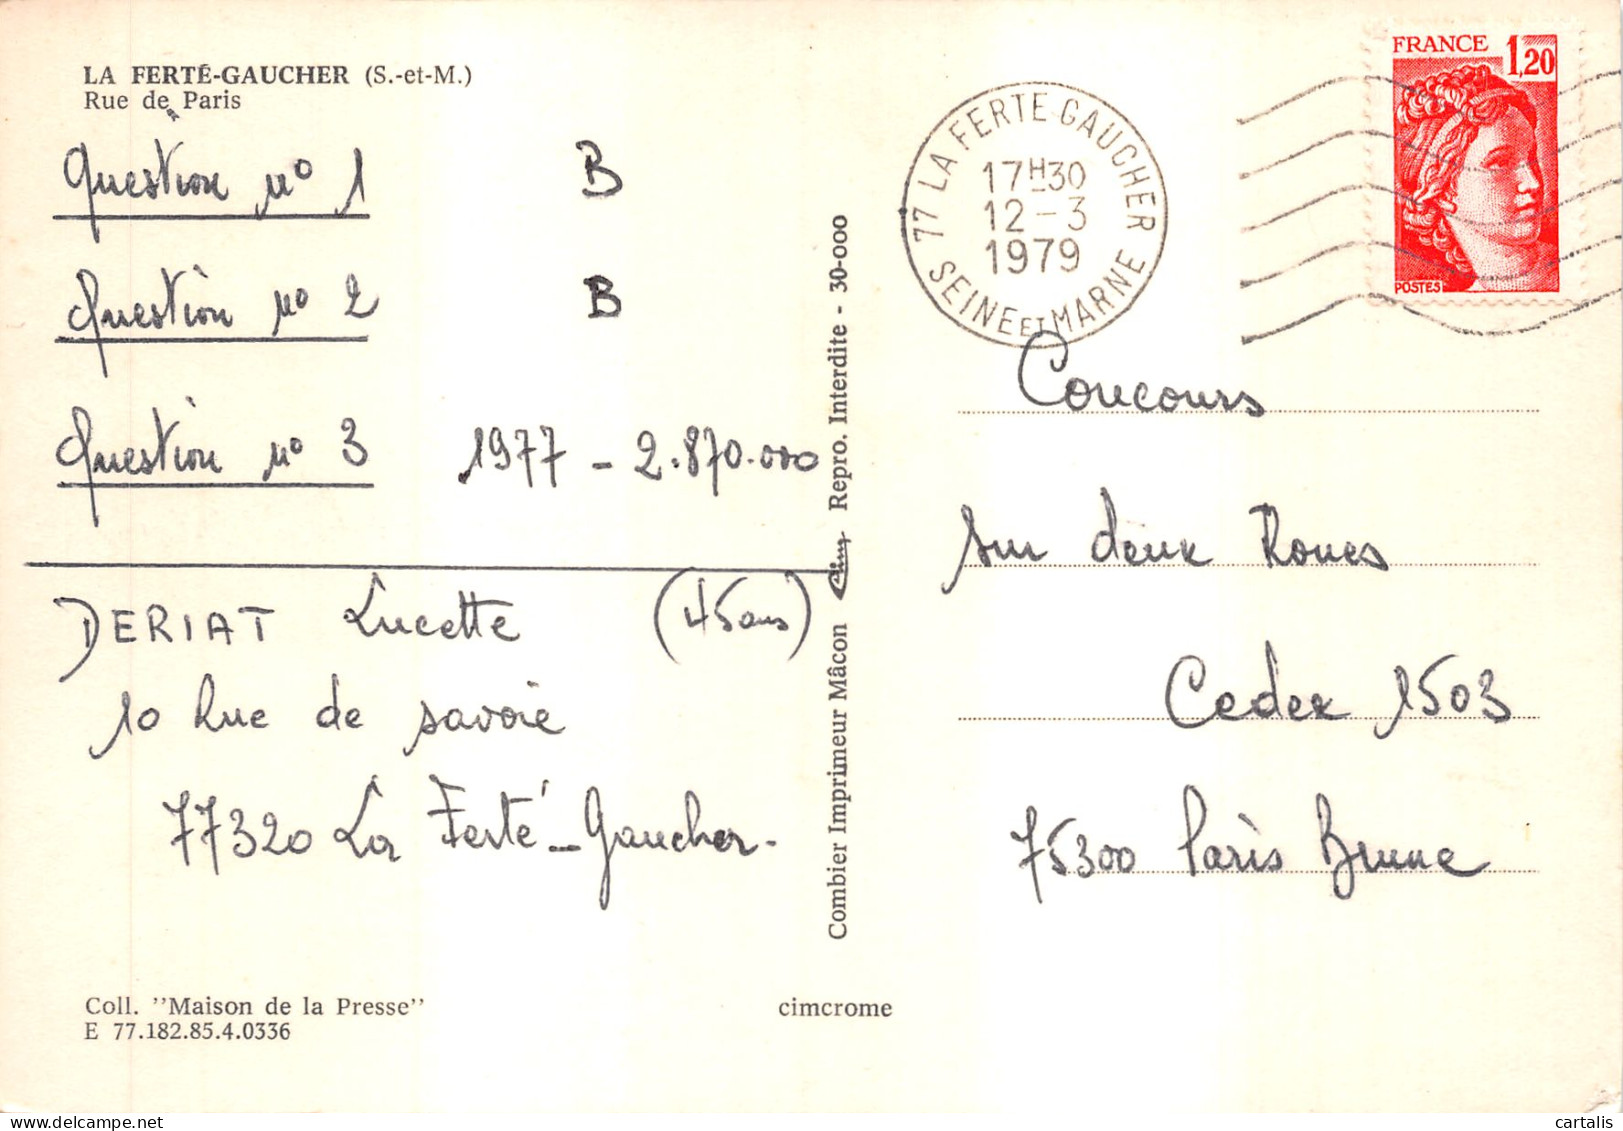 LA FERTÉ-GAUCHER (S.-et-M.)
Rue de Paris
Question n° 1 B
Question n° 2 B
Question n° 3 1977 - 2.870.000
DERIAT Lucette (45 ans)
10 Rue de savoie
77320 La Ferté-Gaucher.
Coll. "Maison de la Presse"
E 77.182.85.4.0336
cimcrome
Combier Imprimeur Mâcon Cim Repro. Interdite - 30-000
77 LA FERTE GAUCHER
17H30
12-3
1979
SEINE ET MARNE
FRANCE 1,20
POSTES
Concours
sur deux Roues
Cedex 1503
75300 Paris Brune
cartalis.com